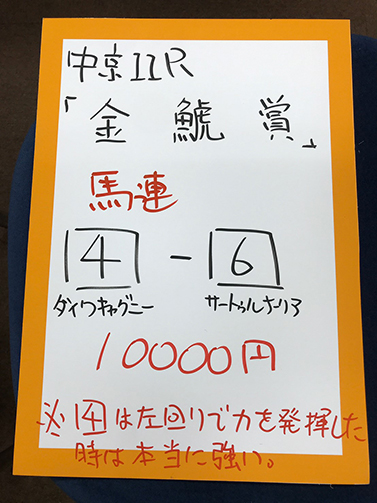 中京11R
「金鯱賞」
馬連
4 - 6
ダイワキャグニー サートゥルナーリア
10000円
※4は左回りで力を発揮した
時は本当に強い。